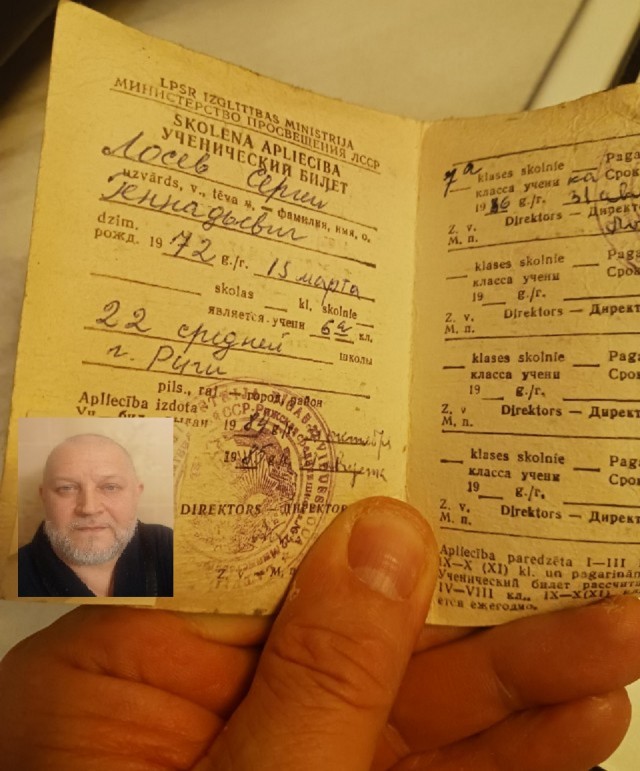 LPSR IZGLĪTĪBAS MINISTRIJA
МИНИСТЕРСТВО ПРОСВЕЩЕНИЯ ЛССР
SKOLĒNA APLIECĪBA
УЧЕНИЧЕСКИЙ БИЛЕТ
Лосев Сергей
uzvārds, v., tēva v. — фамилия, имя, о.
Геннадьевич
dzim.
рожд. 1972 g./г. 15 марта
skolas kl. skolnie
является учени 6а кл.
22 средней школы
г. Риги
pils., raj. — город, район
Apliecība izdota
DIREKTORS — ДИРЕКТОР
Z. v. — М.
7а klases skolnie Paga
класса учени ка Срок
1986 g./г. 31
Z. v. Direktors — Директ
М. п.
klases skolnie Paga
класса учени Срок
19 g./г.
Z. v. Direktors — Директ
М. п.
klases skolnie Paga
класса учени Срок
19 g./г.
Z. v. Direktors — Директ
М. п.
klases skolnie Paga
класса учени Срок
19 g./г.
Z. v. Direktors — Директ
М. п.
Apliecība paredzēta I—III
IX—X (XI) kl. un pagarinām
Ученический билет рассчита
IV—VIII кл., IX—X(XI)
ется ежегодно.